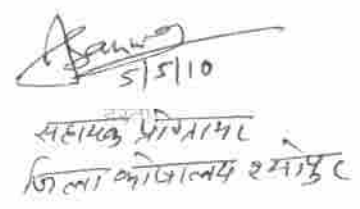 5/5/10
सहायक प्रोग्रामर
जिला कोषालय श्योपुर